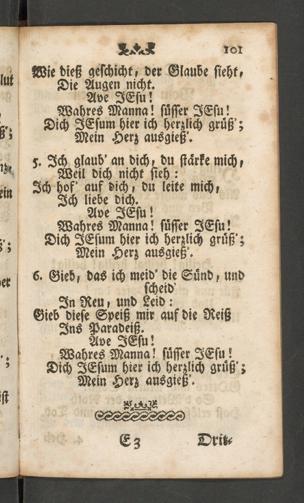 101
Wie dieß geschicht, der Glaube sieht,
Die Augen nicht.
Ave JEsu!
Wahres Manna! süsser JEsu!
Dich JEsum hier ich herzlich grüß';
Mein Herz ausgieß'.
5. Ich glaub' an dich, du stärke mich,
Weil dich nicht sieh:
Ich hof' auf dich, du leite mich,
Ich liebe dich.
Ave JEsu!
Wahres Manna! süsser JEsu!
Dich JEsum hier ich herzlich grüß';
Mein Herz ausgieß'.
6. Gieb, das ich meid' die Sünd, und
scheid'
In Reu, und Leid:
Gieb diese Speiß mir auf die Reiß
Ins Paradeiß.
Ave JEsu!
Wahres Manna! süsser JEsu!
Dich JEsum hier ich herzlich grüß';
Mein Herz ausgieß'.
E 3
Drit-